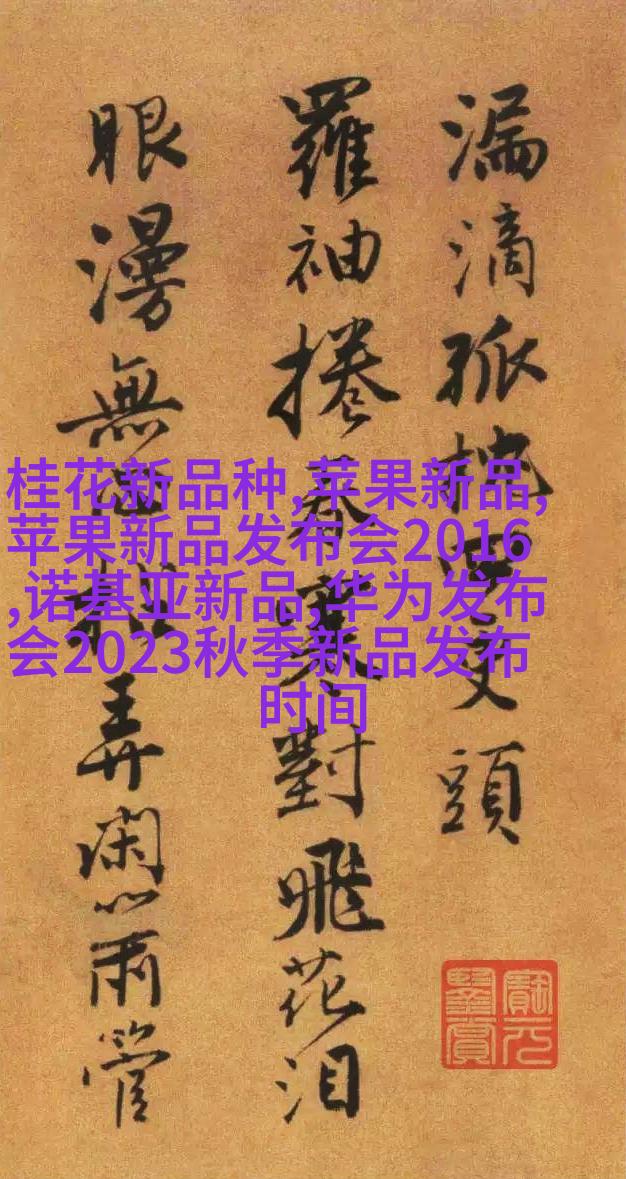 漏滴孤頭
羅袖捲對飛花泪
眼漫無弄闲心雨管
桂花新品种,苹果新品,
苹果新品发布会2016
,诺基亚新品,华为发布
会2023秋季新品发布
时间